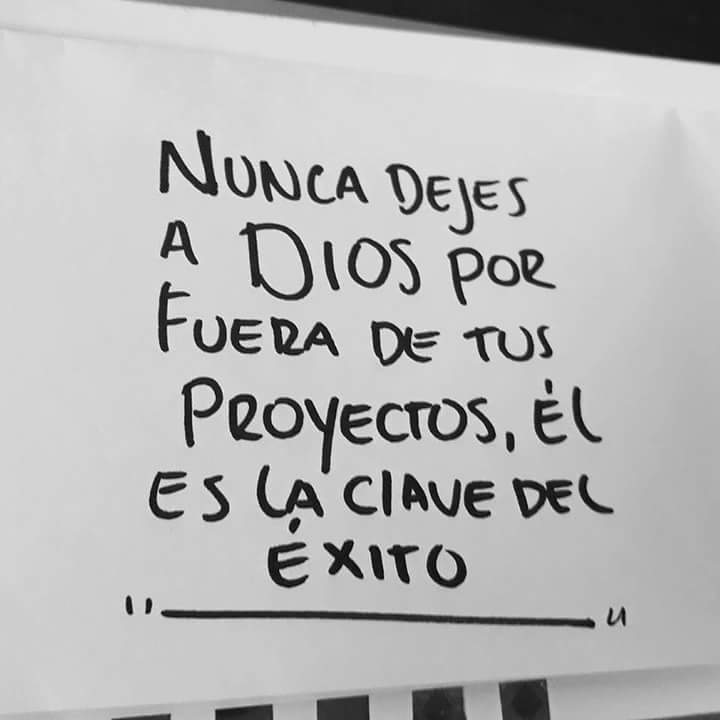 NUNCA DEJES
A DIOS POR
FUERA DE TUS
PROYECTOS, ÉL
ES LA CLAVE DEL
ÉXITO